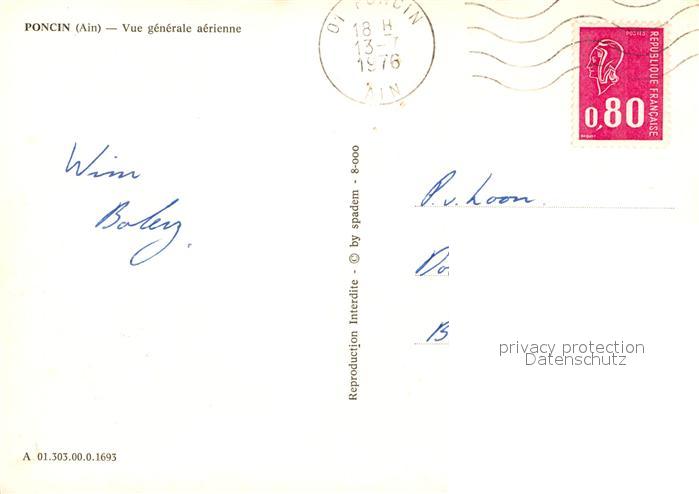 PONCIN (Ain) — Vue générale aérienne
01 PONCIN
18 H
13-7
1976
AIN
POSTES
RÉPUBLIQUE FRANÇAISE
0,80
BEQUET
Wim
Reproduction Interdite - © by spadem - 8-000
P. v. Loon.
Do
B
privacy protection
Datenschutz
A 01.303.00.0.1693